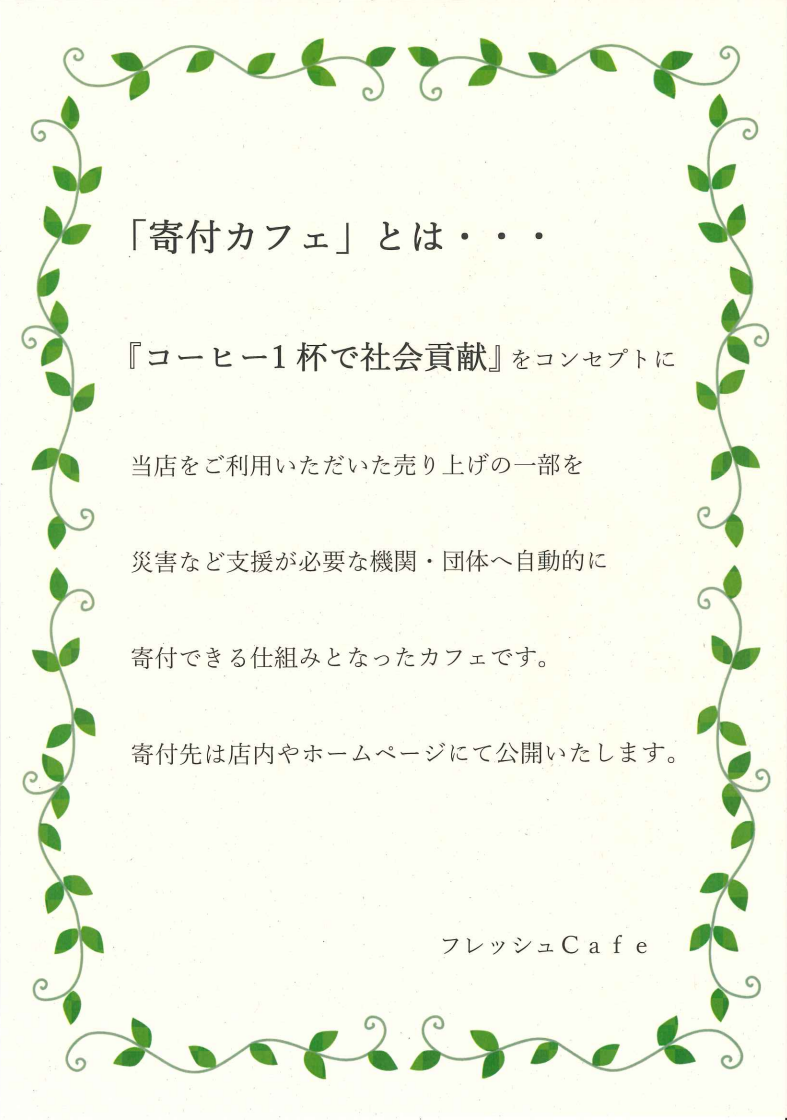 「寄付カフェ」とは・・・
『コーヒー1杯で社会貢献』をコンセプトに
当店をご利用いただいた売り上げの一部を
災害など支援が必要な機関・団体へ自動的に
寄付できる仕組みとなったカフェです。
寄付先は店内やホームページにて公開いたします。
フレッシュＣａｆｅ